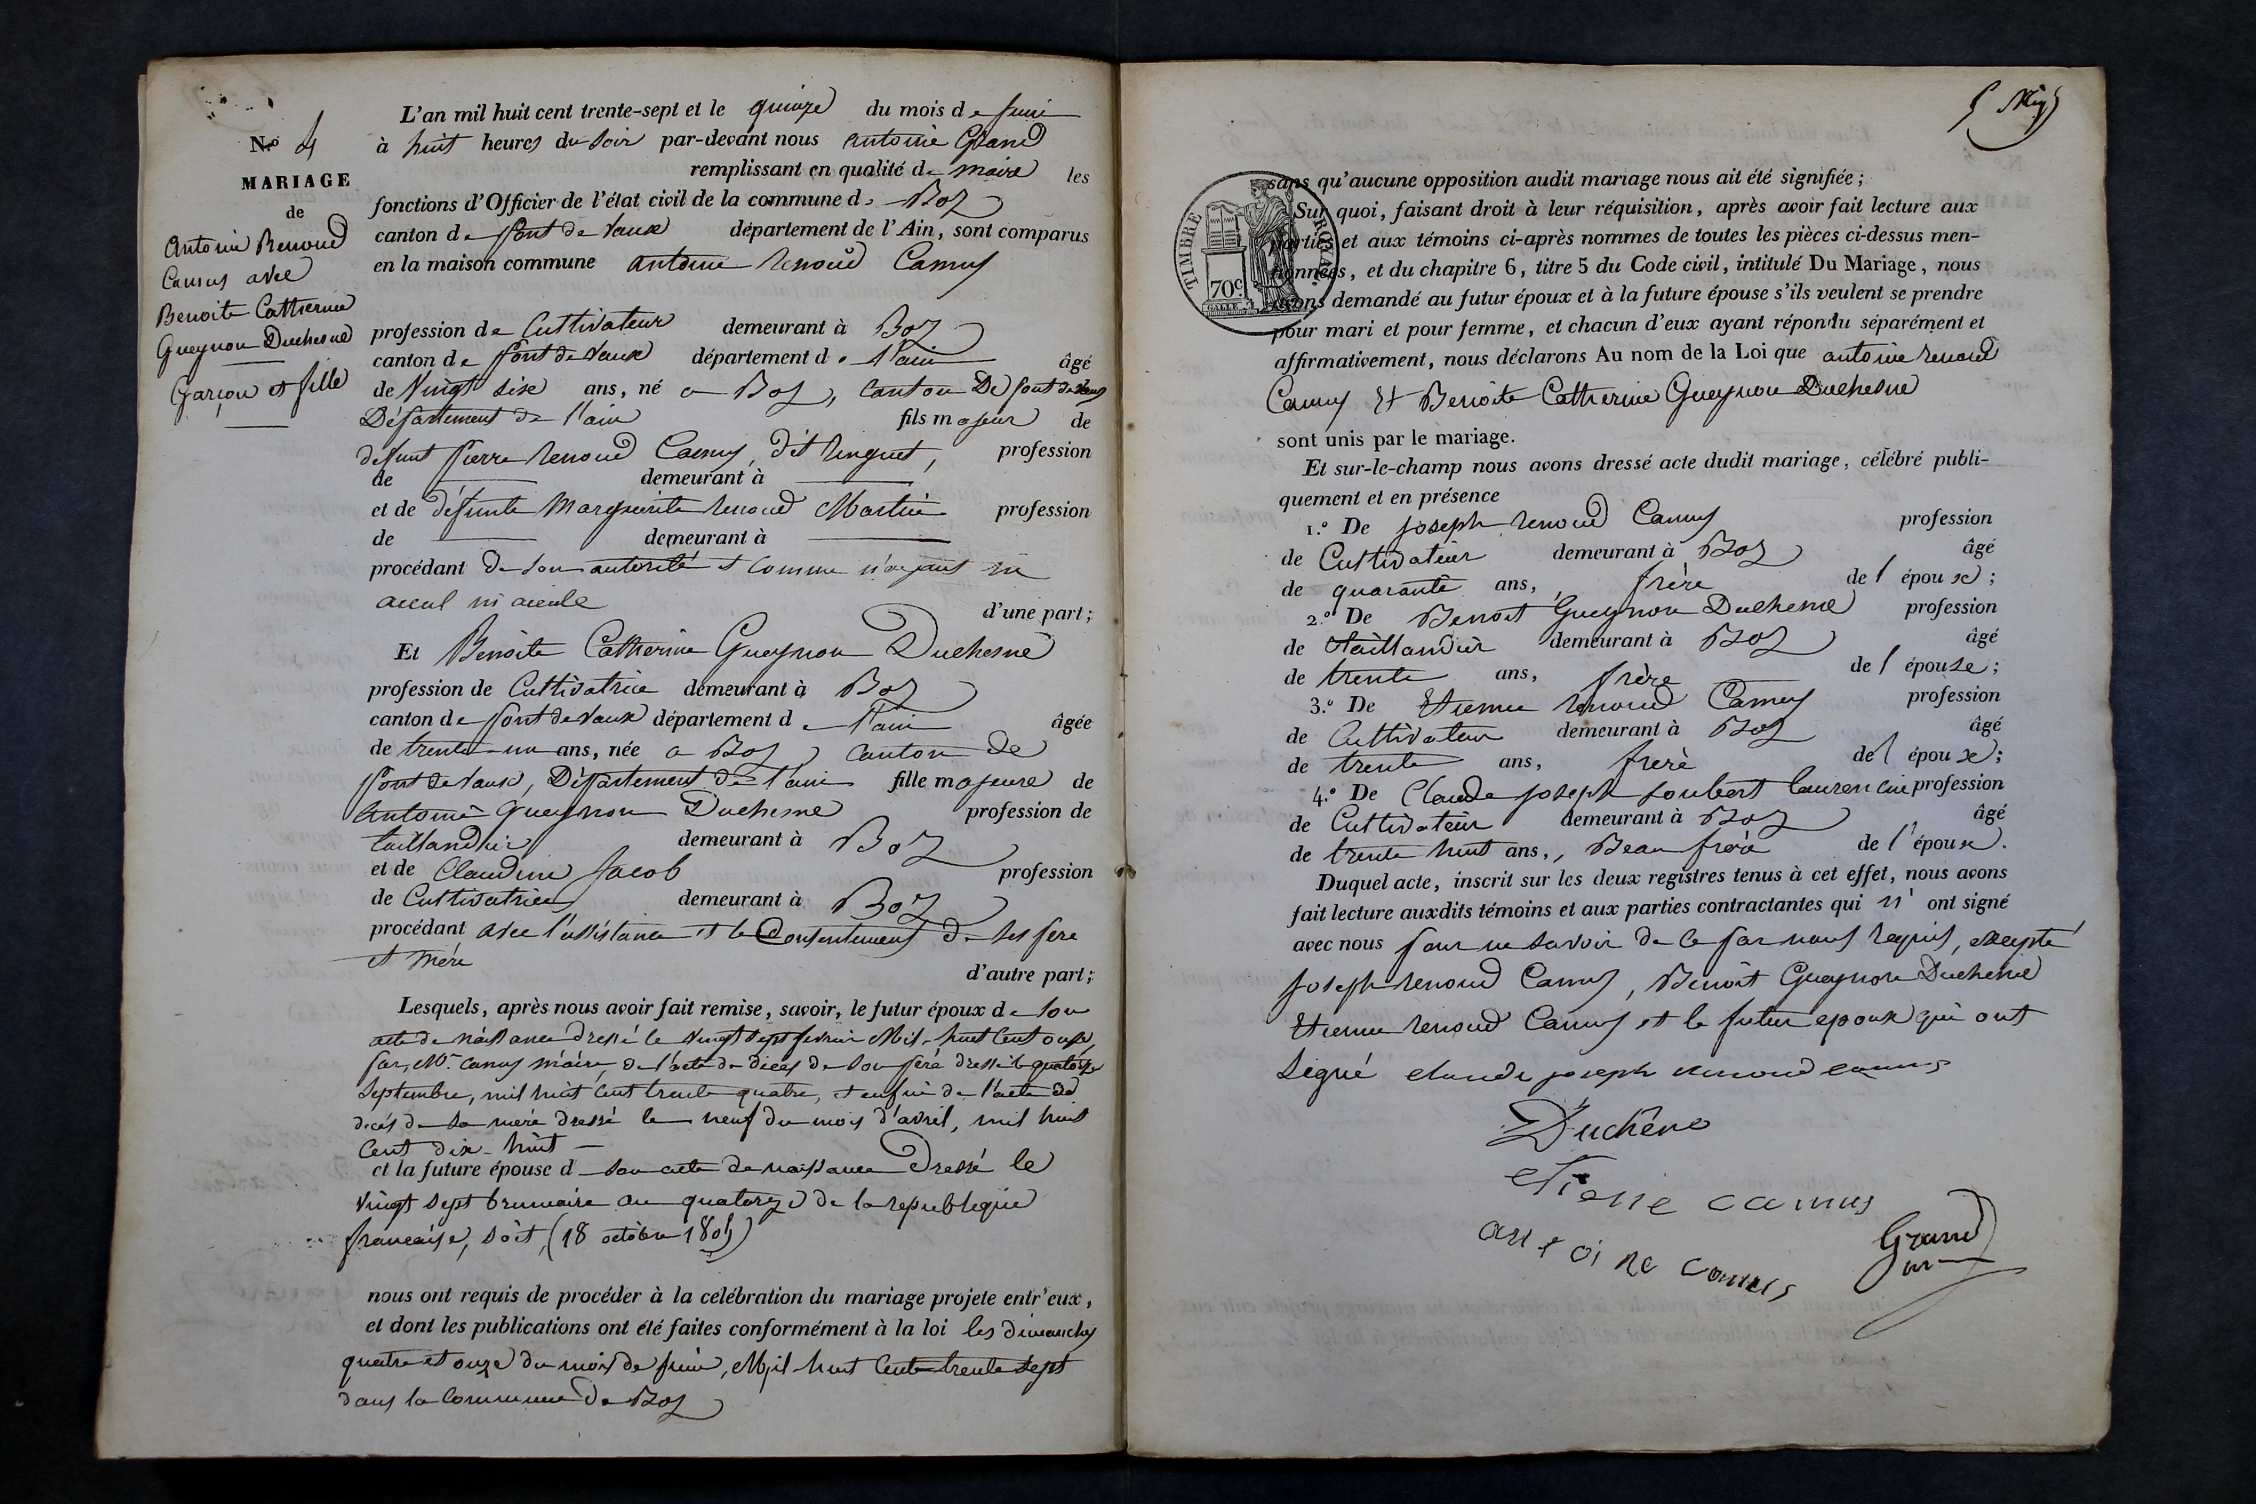 N.o 4
MARIAGE
de
Antoine Renoud
Camus avec
Benoite Catherine
Gueynon Duchesne
Garçon et fille
L'an mil huit cent trente-sept et le quinze du mois de juin
à huit heures du soir par-devant nous antoine Grand
remplissant en qualité de maire les
fonctions d'Officier de l'état civil de la commune de Boz
canton de pont de Vaux département de l'Ain, sont comparus
en la maison commune antoine renoud Camus
profession de Cultivateur demeurant à Boz
canton de pont de Vaux département de l'ain âgé
de Vingt six ans, né a Boz, canton De pont de Vaux
Département de l'ain fils majeur de
defunt pierre renoud Camus, dit linguet, profession
de demeurant à
et de défunte Marguerite renoud Martin profession
de demeurant à
procédant de son autorité et comme n'ayant ni
aieul ni aieule d'une part;
Et Benoite Catherine Gueynon Duchesne
profession de Cultivatrice demeurant à Boz
canton de pont de vaux département de l'ain âgée
de trente-un ans, née a Boz, canton de
pont de Vaux, Département de l'ain fille majeure de
antoine Gueynon Duchesne profession de
taillandier demeurant à Boz
et de Claudine Jacob profession
de Cultivatrice demeurant à Boz
procédant avec l'assistance et le Consentement de ses pere
et mère d'autre part;
Lesquels, après nous avoir fait remise, savoir, le futur époux de son
acte de naissance dressé le vingt sept fevrier Mil-huit Cent onze,
par, Mr. Camus maire, de l'acte de décès de son père dressé le quatorze
Septembre, mil huit Cent trente quatre, et enfin de l'acte de
décès de sa mère dressé le neuf du mois d'avril, mil huit
Cent dix-huit
et la future épouse d son acte de naissance dressé le
vingt sept brumaire an quatorze de la republique
française, soit, (18 octobre 1805)
nous ont requis de procéder à la célébration du mariage projeté entr'eux,
et dont les publications ont été faites conformément à la loi les dimanches
quatre et onze du mois de juin, Mil huit Cent trente sept
dans la Commune de Boz
TIMBRE ROYAL
70c.
sans qu'aucune opposition audit mariage nous ait été signifiée;
Sur quoi, faisant droit à leur réquisition, après avoir fait lecture aux
parties et aux témoins ci-après nommes de toutes les pièces ci-dessus men-
tionnées, et du chapitre 6, titre 5 du Code civil, intitulé Du Mariage, nous
avons demandé au futur époux et à la future épouse s'ils veulent se prendre
pour mari et pour femme, et chacun d'eux ayant répondu séparément et
affirmativement, nous déclarons Au nom de la Loi que antoine renoud
Camus Et Benoite Catherine Gueynon Duchesne
sont unis par le mariage.
Et sur-le-champ nous avons dressé acte dudit mariage, célébré publi-
quement et en présence
1.o De joseph renoud Camus profession
de Cultivateur demeurant à Boz âgé
de quarante ans, frère de l époux;
2.o De Benoit Gueynon Duchesne profession
de taillandier demeurant à Boz âgé
de trente ans, frère de l épouse;
3.o De Etienne renoud Camus profession
de Cultivateur demeurant à Boz âgé
de trente ans, frère de l époux;
4.o De Claude joseph joubert laurencin profession
de Cultivateur demeurant à Boz âgé
de trente huit ans, Beau frère de l'époux.
Duquel acte, inscrit sur les deux registres tenus à cet effet, nous avons
fait lecture auxdits témoins et aux parties contractantes qui n' ont signé
avec nous pour ne savoir de ce par nous requis, excepté
joseph renoud Camus, Benoit Gueynon Duchesne
Etienne renoud Camus et le futur epoux qui ont
signé claude joseph renoud camus
Duchêne
etiene camus
antoine camus
Grand